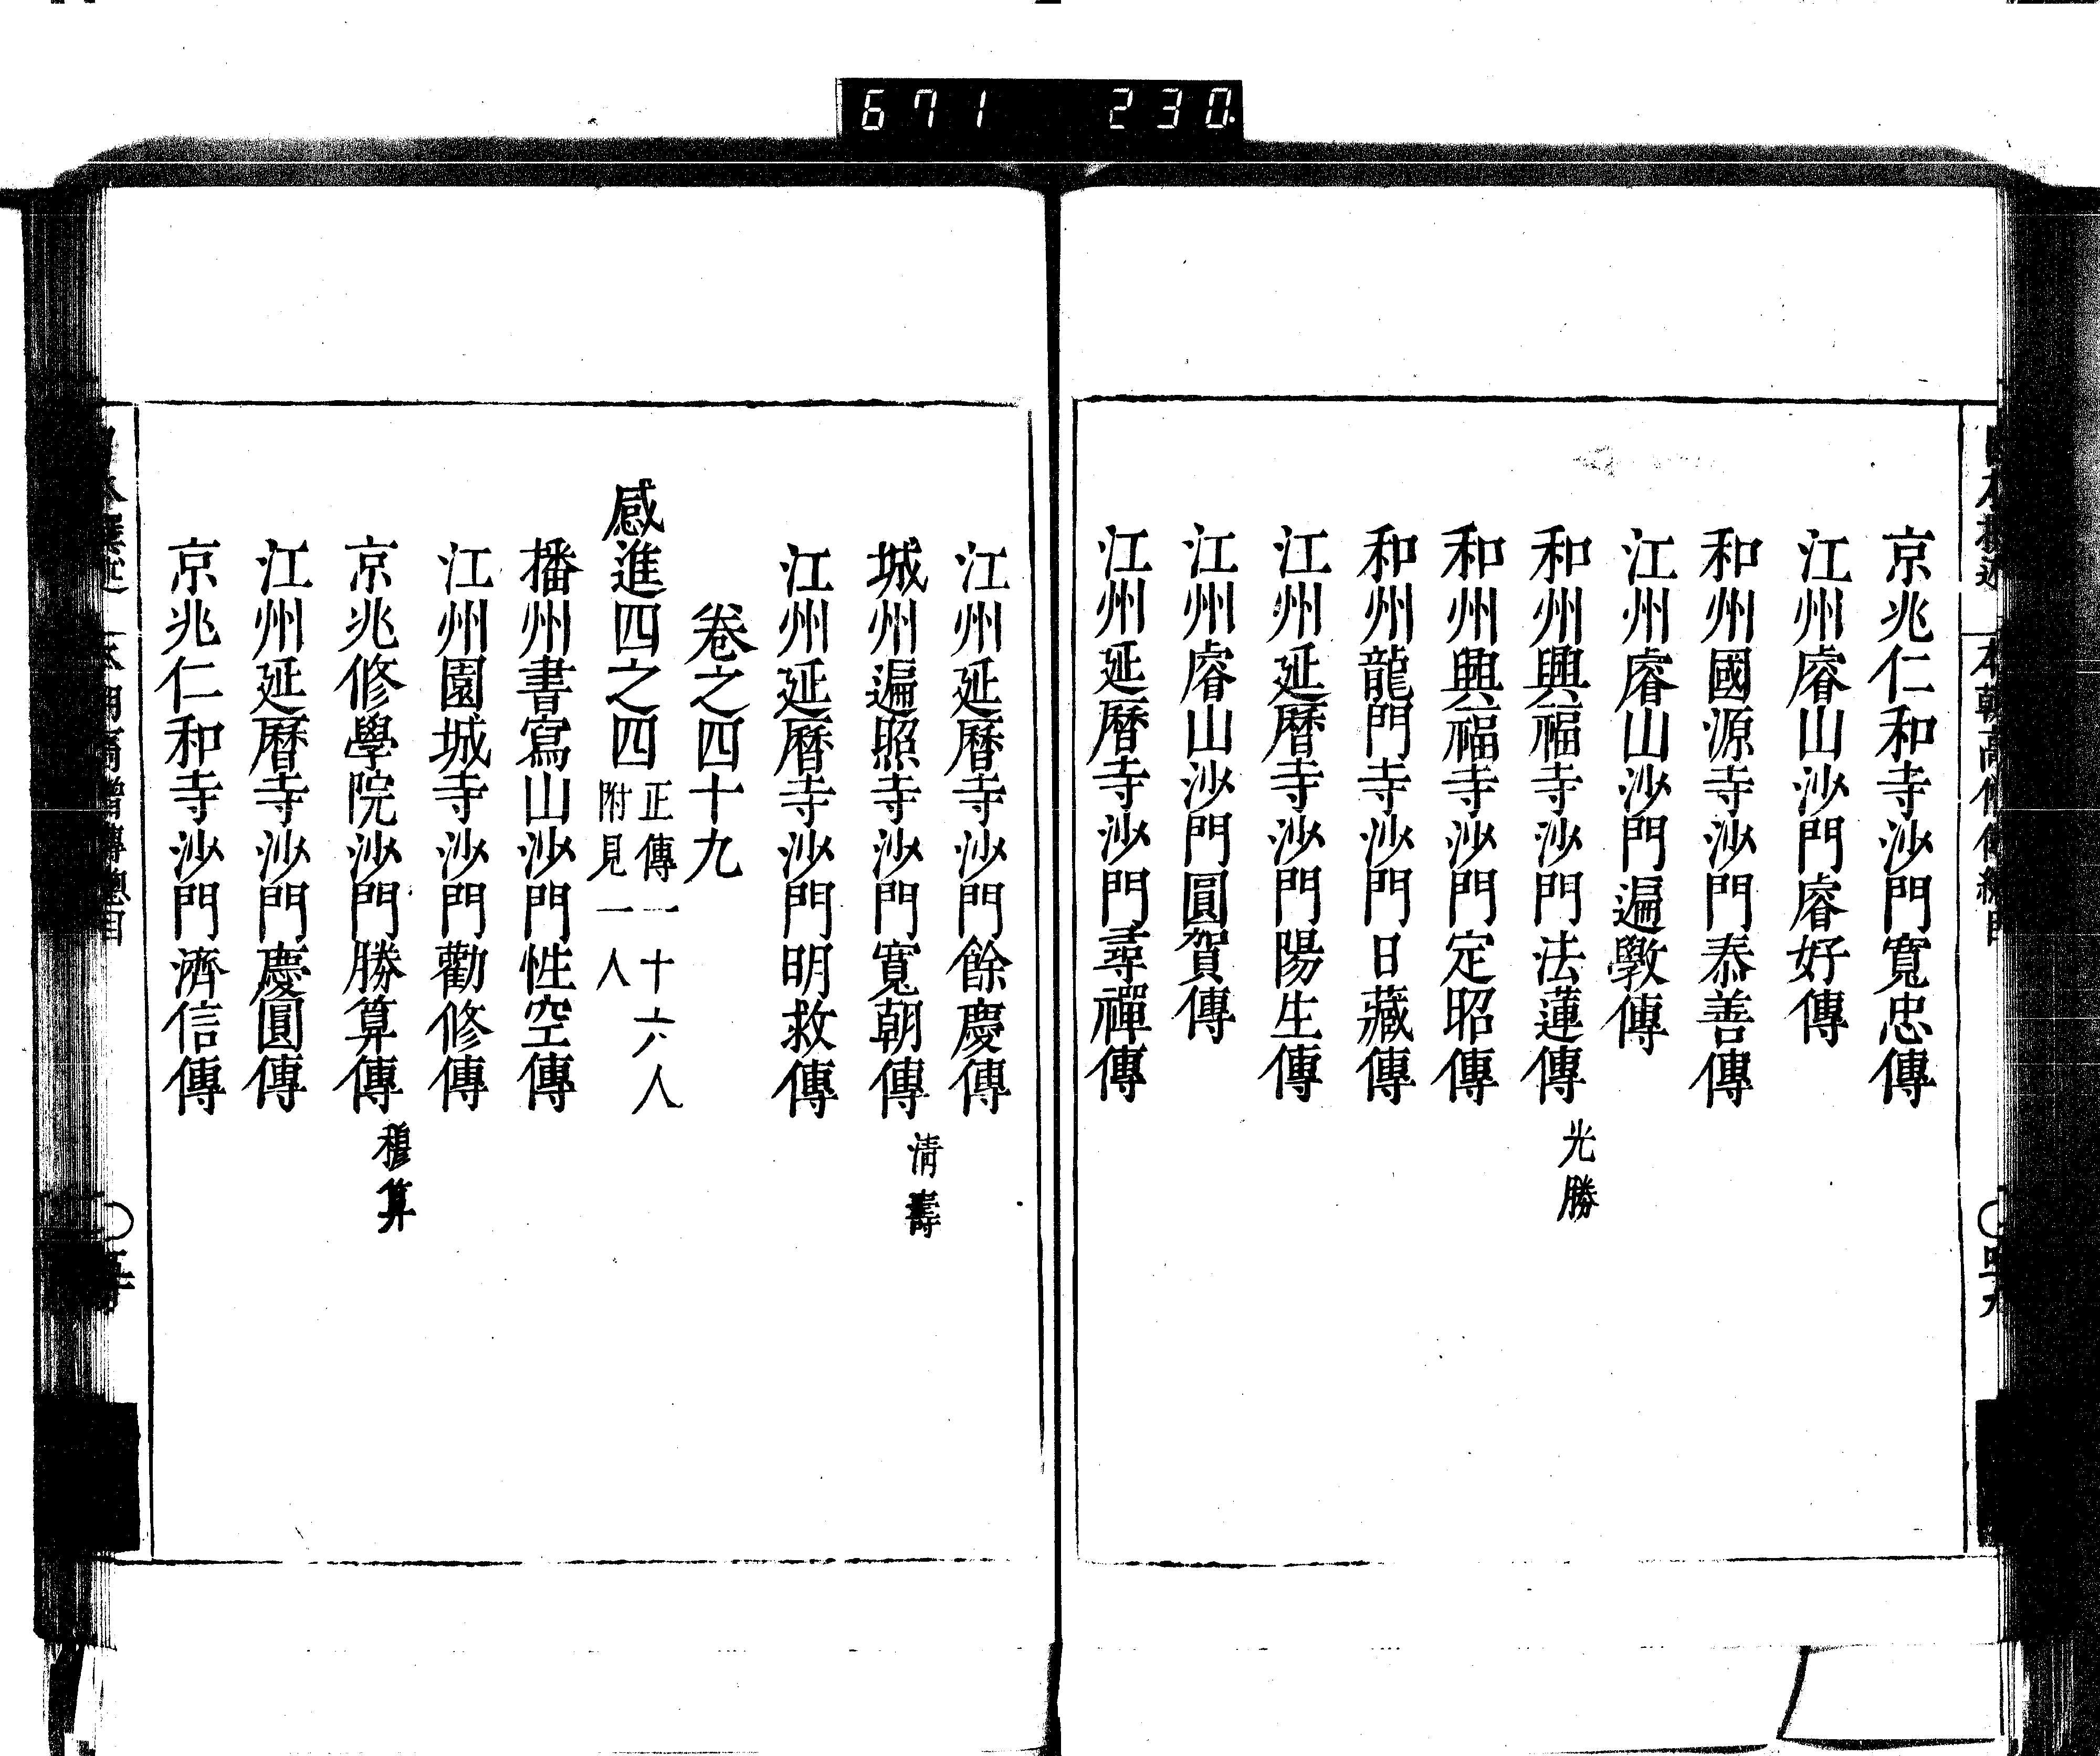 671 230
京兆仁和寺沙門寬忠傳
江州睿山沙門睿好傳
和州國源寺沙門泰善傳
江州睿山沙門遍斆傳
和州興福寺沙門法蓮傳 光勝
和州興福寺沙門定昭傳
和州龍門寺沙門日藏傳
江州延曆寺沙門陽生傳
江州睿山沙門圓賀傳
江州延曆寺沙門尋禪傳
江州延曆寺沙門餘慶傳
城州遍照寺沙門寬朝傳 清壽
江州延曆寺沙門明救傳
卷之四十九
感進四之四 正傳一十六人 附見一人
播州書寫山沙門性空傳
江州園城寺沙門勸修傳
京兆修學院沙門勝算傳 穆算
江州延曆寺沙門慶圓傳
京兆仁和寺沙門濟信傳